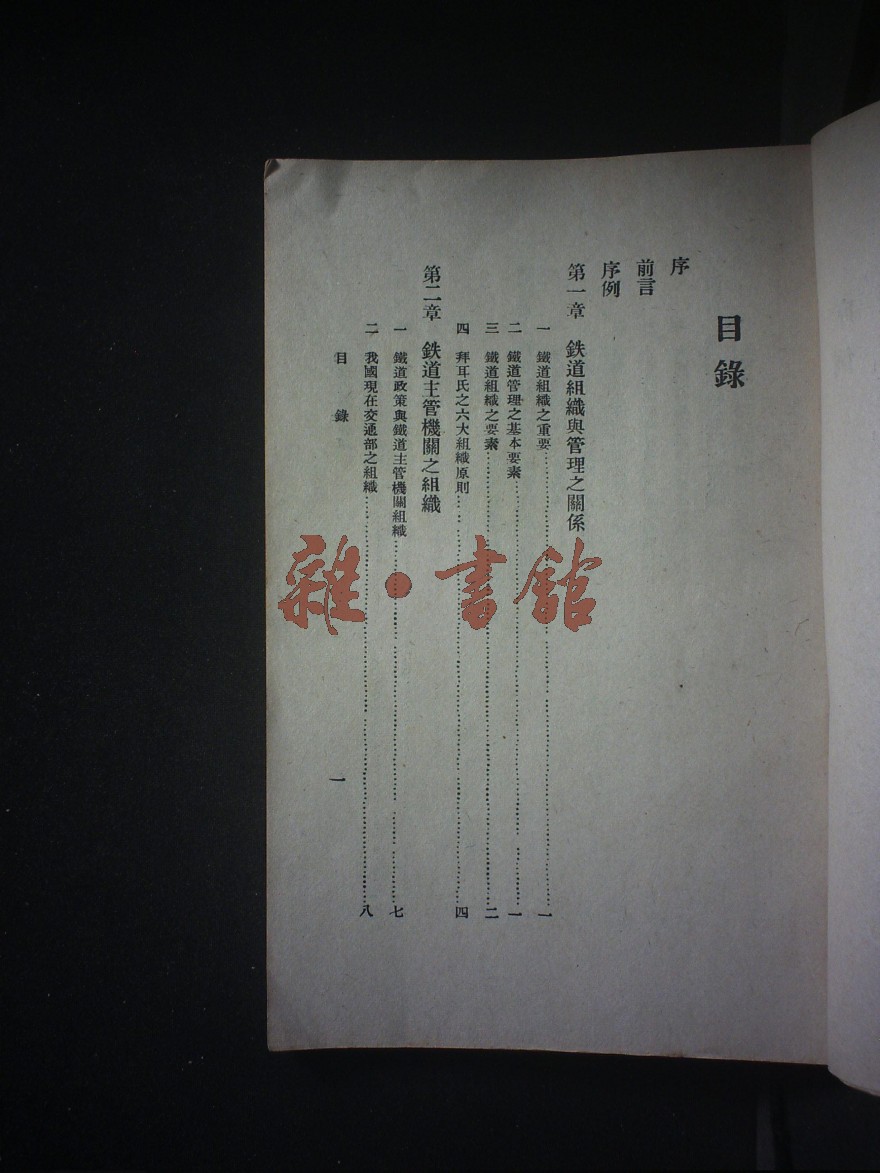 目錄
序
前言
序例
第一章 鉄道組織與管理之關係
一 鐵道組織之重要……一
二 鐵道管理之基本要素……一
三 鐵道組織之要素……二
四 拜耳氏之六大組織原則……四
第二章 鉄道主管機關之組織
一 鐵道政策與鐵道主管機關組織……七
二 我國現在交通部之組織……八
目錄 一
雜·書館